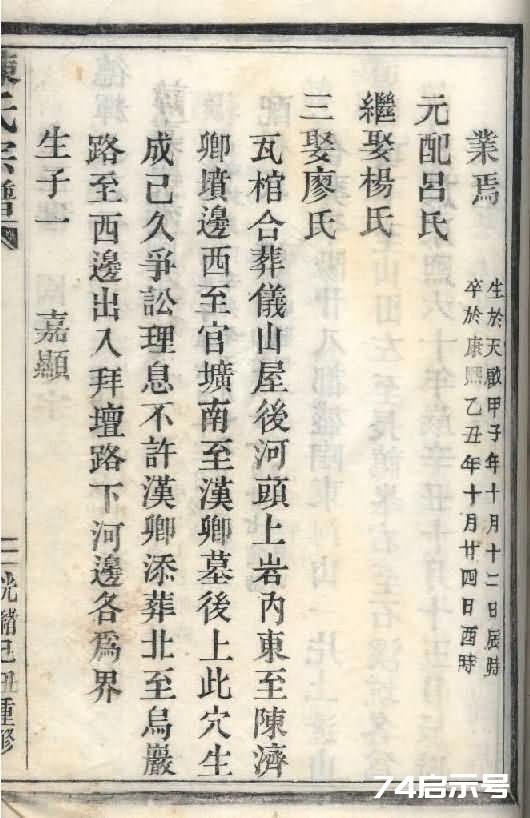 業焉
生於天啟甲子年十月十二日辰時
卒於康熙乙丑年十月廿四日酉時
元配呂氏
繼娶楊氏
三娶廖氏
瓦棺合葬儀山屋後河頭上岩內東至陳濟
卿墳邊西至官壙南至漢卿墓後上此穴生
成己久爭訟理息不許漢卿添葬北至烏巖
路至西邊出入拜壇路下河邊各爲界
生子一 嘉顯
陳氏宗譜
光緒己丑重修
74启示号